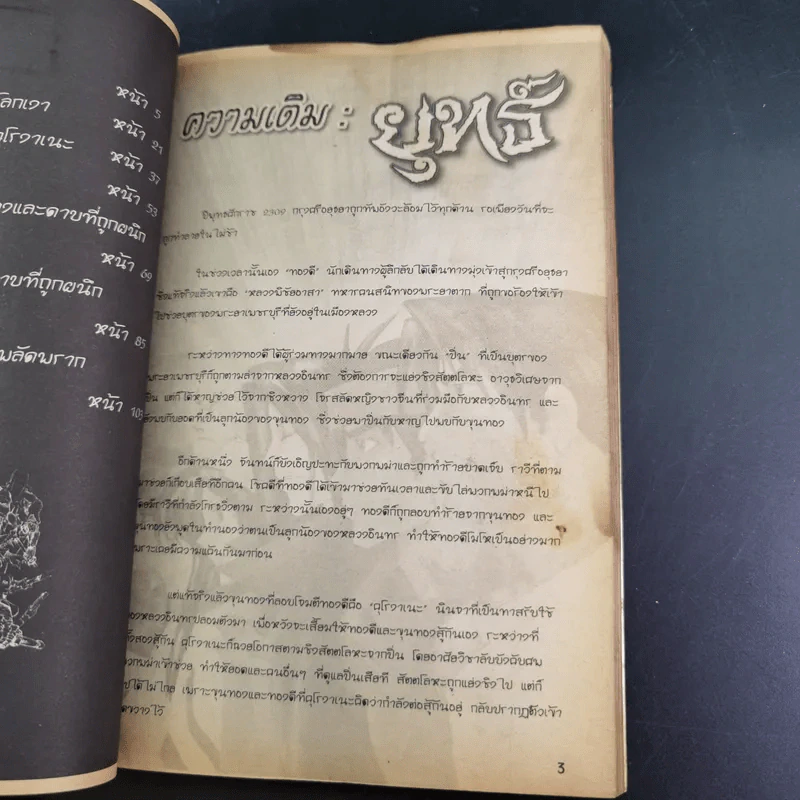 หน้า 5
โลกเงา
หน้า 21
คุโรงาเนะ
หน้า 37
หน้า 53
และดาบที่ถูกผนึก
หน้า 69
ดาบที่ถูกผนึก
หน้า 85
พลัดพราก
หน้า 103
ความเดิม : ยุทธ์
ปีพุทธศักราช 2309 กรุงศรีอยุธยาถูกทัพอังวะล้อมไว้ทุกด้าน รอเพียงวันที่จะ
ถูกทำลายในไม่ช้า
ในช่วงเวลานั้นเอง "ทองดี" นักเดินทางผู้ลึกลับได้เดินทางมุ่งเข้าสู่กรุงศรีอยุธยา
ซึ่งแท้จริงแล้วเขาคือ "หลวงพิชัยอาสา" ทหารคนสนิทของพระยาตาก ที่ถูกขอร้องให้เข้า
ไปช่วยบุตรของพระยาเพชรบุรีที่ยังอยู่ในเมืองหลวง
ระหว่างทางทองดีได้ผู้ร่วมทางมากมาย ขณะเดียวกัน "ปิ่น" ที่เป็นบุตรของ
พระยาเพชรบุรีก็ถูกตามล่าจากหลวงอินทร ซึ่งต้องการจะแย่งชิงสัตตโลหะ อาวุธวิเศษจาก
ปิ่น แต่ก็ได้หาญช่วยไว้จากซิงหวาง โจรสลัดหญิงชาวจีนที่ร่วมมือกับหลวงอินทร และ
ยังพบกับยอดที่เป็นลูกน้องของขุนทอง ซึ่งช่วยพาปิ่นกับหาญไปพบกับขุนทอง
อีกด้านหนึ่ง จันทน์ก็บังเอิญปะทะกับพวกพม่าและถูกทำร้ายบาดเจ็บ ราวีที่ตาม
มาช่วยก็เกือบเสียทีอีกคน โชคดีที่ทองดีได้เข้ามาช่วยทันเวลาและขับไล่พวกพม่าหนีไป
โดยมีราวีที่กำลังโกรธวิ่งตาม ระหว่างนั้นเองอยู่ๆ ทองดีก็ถูกลอบทำร้ายจากขุนทอง และ
ขุนทองยังพูดในทำนองว่าตนเป็นลูกน้องของหลวงอินทร ทำให้ทองดีโมโหเป็นอย่างมาก
เพราะเคยมีความแค้นกันมาก่อน
แต่แท้จริงแล้วขุนทองที่ลอบโจมตีทองดีคือ "คุโรงาเนะ" นินจาที่เป็นทาสรับใช้
ของหลวงอินทรปลอมตัวมา เพื่อหวังจะเสี้ยมให้ทองดีและขุนทองสู้กันเอง ระหว่างที่
ทั้งสองสู้กัน คุโรงาเนะก็ฉวยโอกาสตามชิงสัตตโลหะจากปิ่น โดยอาศัยวิชาลับบังคับศพ
พวกพม่าเข้าช่วย ทำให้ยอดและคนอื่นๆ ที่ดูแลปิ่นเสียที สัตตโลหะถูกแย่งชิงไป แต่ก็
ไปได้ไม่ไกล เพราะขุนทองและทองดีที่คุโรงาเนะคิดว่ากำลังต่อสู้กันอยู่ กลับปรากฏตัวเข้า
ขัดขวางไว้
3